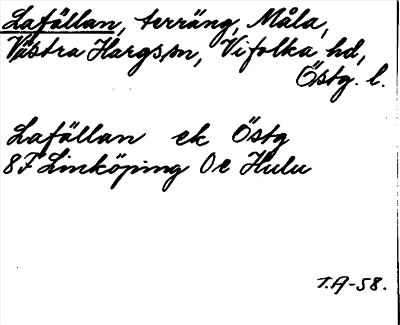 Lafällan, terräng, Måla,
Västra Hargs sn, Vifolka hd,
Östg. l.
Lafällan ek Östg
8F Linköping 0e Hulu
T.A-58.